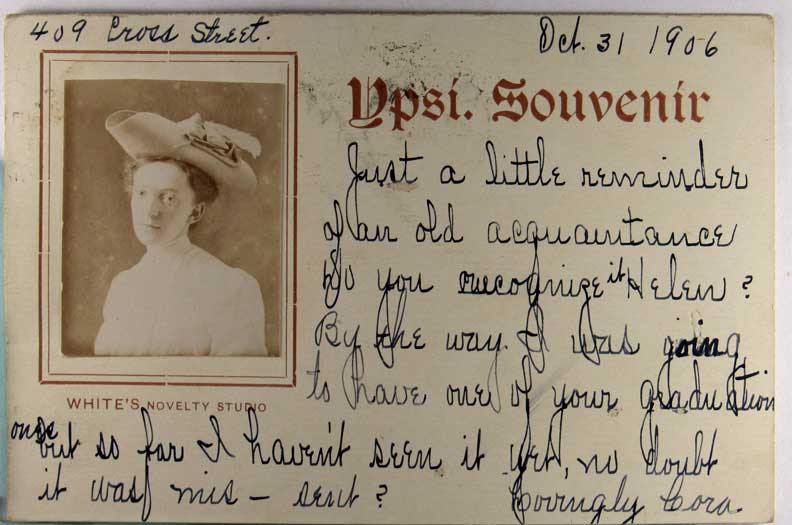 409 Cross Street.
Oct. 31 1906
Ypsi. Souvenir
Just a little reminder
of an old acquaintance
Do you recognize it Helen?
By the way. I was going
to have one of your graduation
WHITE'S NOVELTY STUDIO
ones
but so far I haven't seen it yet, no doubt
it was mis - sent?
Lovingly Cora.